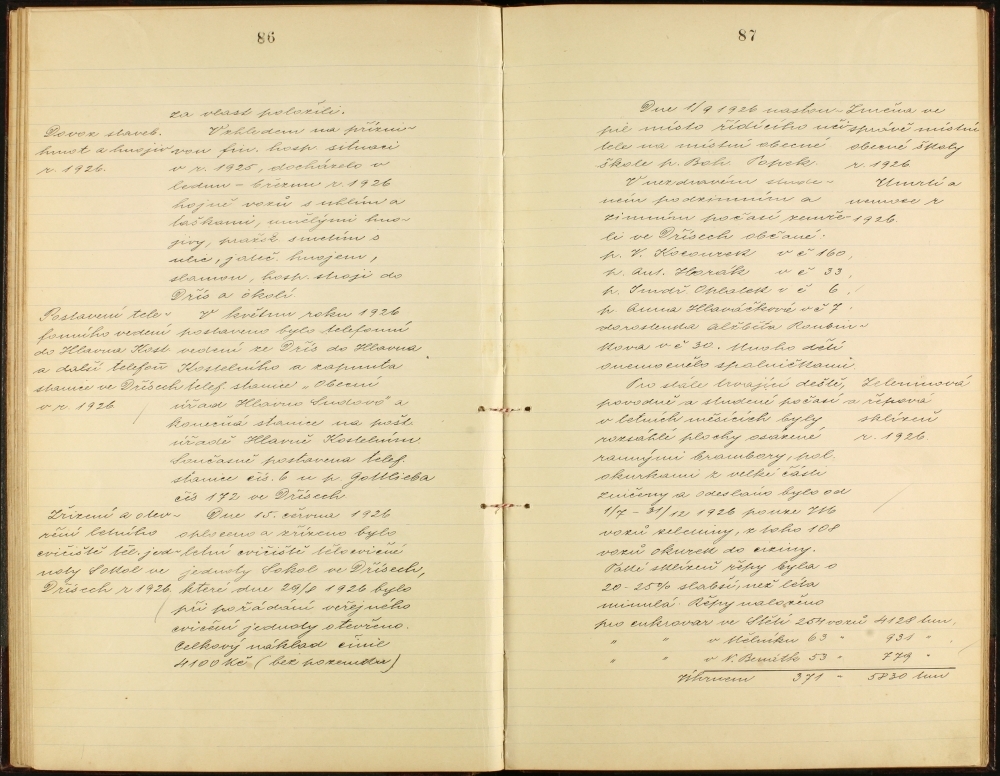 86
za vlast položili.
Dovoz staveb. Vzhledem na přízni-
hmot a hnojiv von fin. hosp. situaci
r. 1926. v r. 1925, docházelo v
lednu - březnu r. 1926
hojně vozů s uhlím a
taškami, umělými hno-
jivy, pražsk. smetím s
ulic, jateč. hnojem,
slamou, hosp. stroji do
Dřís a okolí.
Postavení tele- V květnu roku 1926
fonního vedení postaveno bylo telefonní
do Hlavna Kost vedení ze Dřís do Hlavna
a další telefon Kostelního a zapnuta
stanice ve Dřísech telef. stanice „Obecní
v r. 1926 úřad Hlavno Sudovo" a
konečná stanice na pošt.
úřadě Hlavně Kostelním
Současně postavena telef.
stanice čís. 6 u p. Gottlieba
čís 172 ve Dřísech
Zřízení a otev- Dne 15. června 1926
ření letního oploceno a zřízeno bylo
cvičiště těl. jed- letní cvičiště tělocvičné
noty Sokol ve jednoty Sokol ve Dřísech,
Dřísech r 1926. které dne 29/8 1926 bylo
při pořádání veřejného
cvičení jednoty otevřeno.
Celkový náklad činil
4100 Kč (bez pozemku)
87
Dne 1/9 1926 nastou- Změna ve
pil místo řídícího uči- správě místní
tele na místní obecné obecné školy
škole p. Boh. Popek. r. 1926
V nezdravém stude- Úmrtí a
ném podzimním a nemoce r
zimním počasí zemře- 1926.
li ve Dřísech občané:
p. V. Kocourek v č 160,
p. Ant. Horák v č 33,
p. Jindř. Oplatek v č 6,
p. Anna Hlaváčková v č 7.
dorostenka Alžběta Roubín-
kova v č 30. Mnoho dětí
onemocnělo spalničkami.
Pro stále trvající deště, Zeleninová
povodně a studené počasí a řepová
v letních měsících byly sklizeň
rozsáhlé plochy osázené r. 1926
rannými brambory, pol.
okurkami z velké části
zničeny a odesláno bylo od
1/7 - 31/12 1926 pouze
vozů zeleniny, z toho 108
vozů okurek do ciziny.
Také sklizeň řepy byla o
20-25% slabší, než léta
minulá. Řepy naloženo
pro cukrovar ve Štětí 254 vozů 4128 tun,
" " v Mělníku 63 " 931 "
" " v N. Benátk 53 " 779 "
Úhrnem 371 " 5830 tun